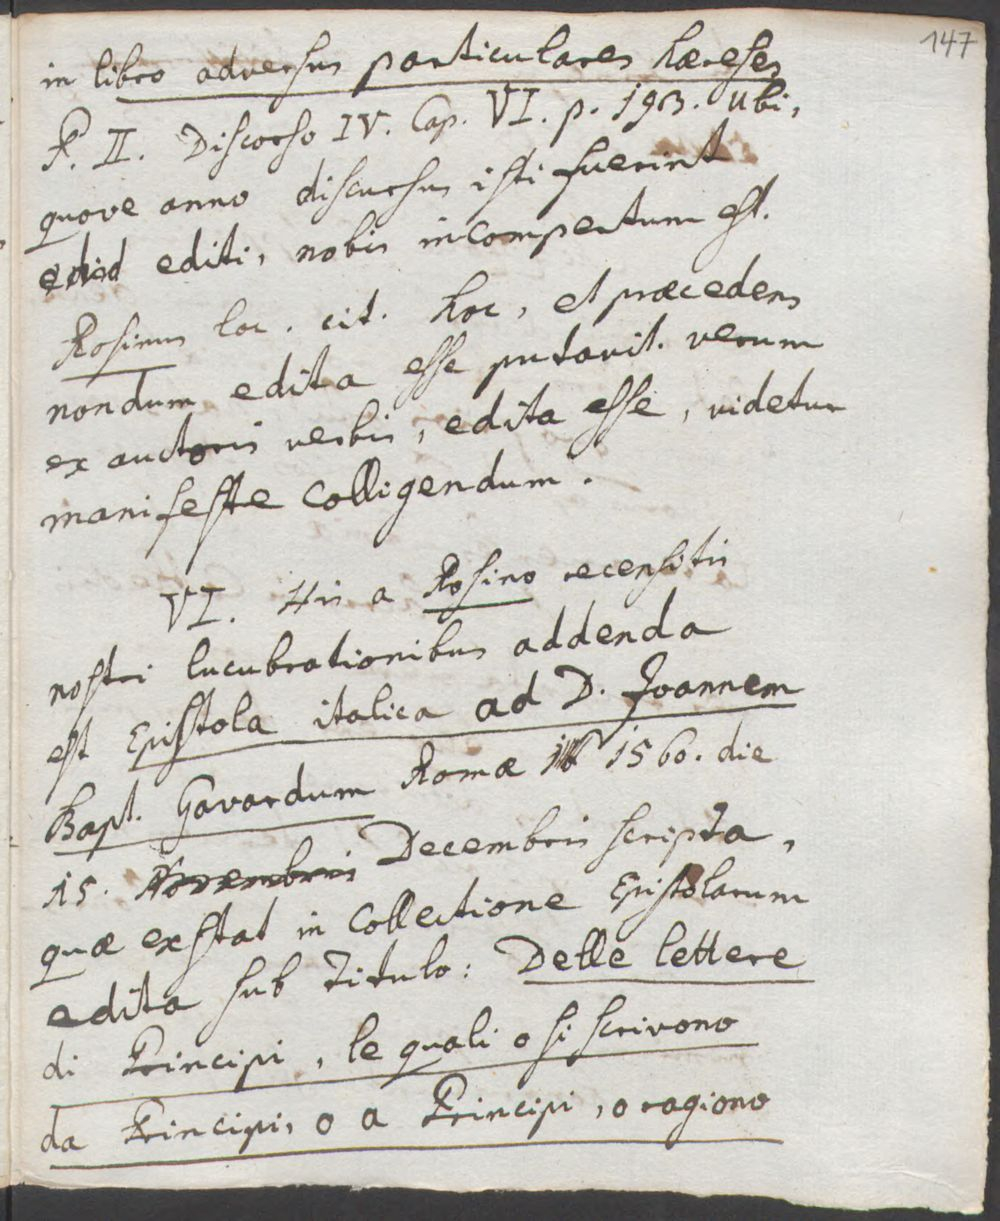 147
in libro adversus particulares hæreses
P. II. Discorso IV. Cap. VI. p. 193. Ubi,
quove anno discursus isti fuerint
editi, nobis incompertum est.
Rosinus loc. cit. hoc, et præcedens
nondum edita esse putavit. verum
ex auctoris verbis, edita esse, videtur
manifeste colligendum.
VI. His a Rosino recensitis
nostri lucubrationibus addenda
est Epistola italica ad D. Joannem
Bapt. Gavardum Romæ 1560. die
15. Novembris Decembris scripta,
quæ exstat in Collectione Epistolarum
edita sub titulo: Delle lettere
di Principi, le quali o si scrivono
da Principi, o a Principi, o ragiono